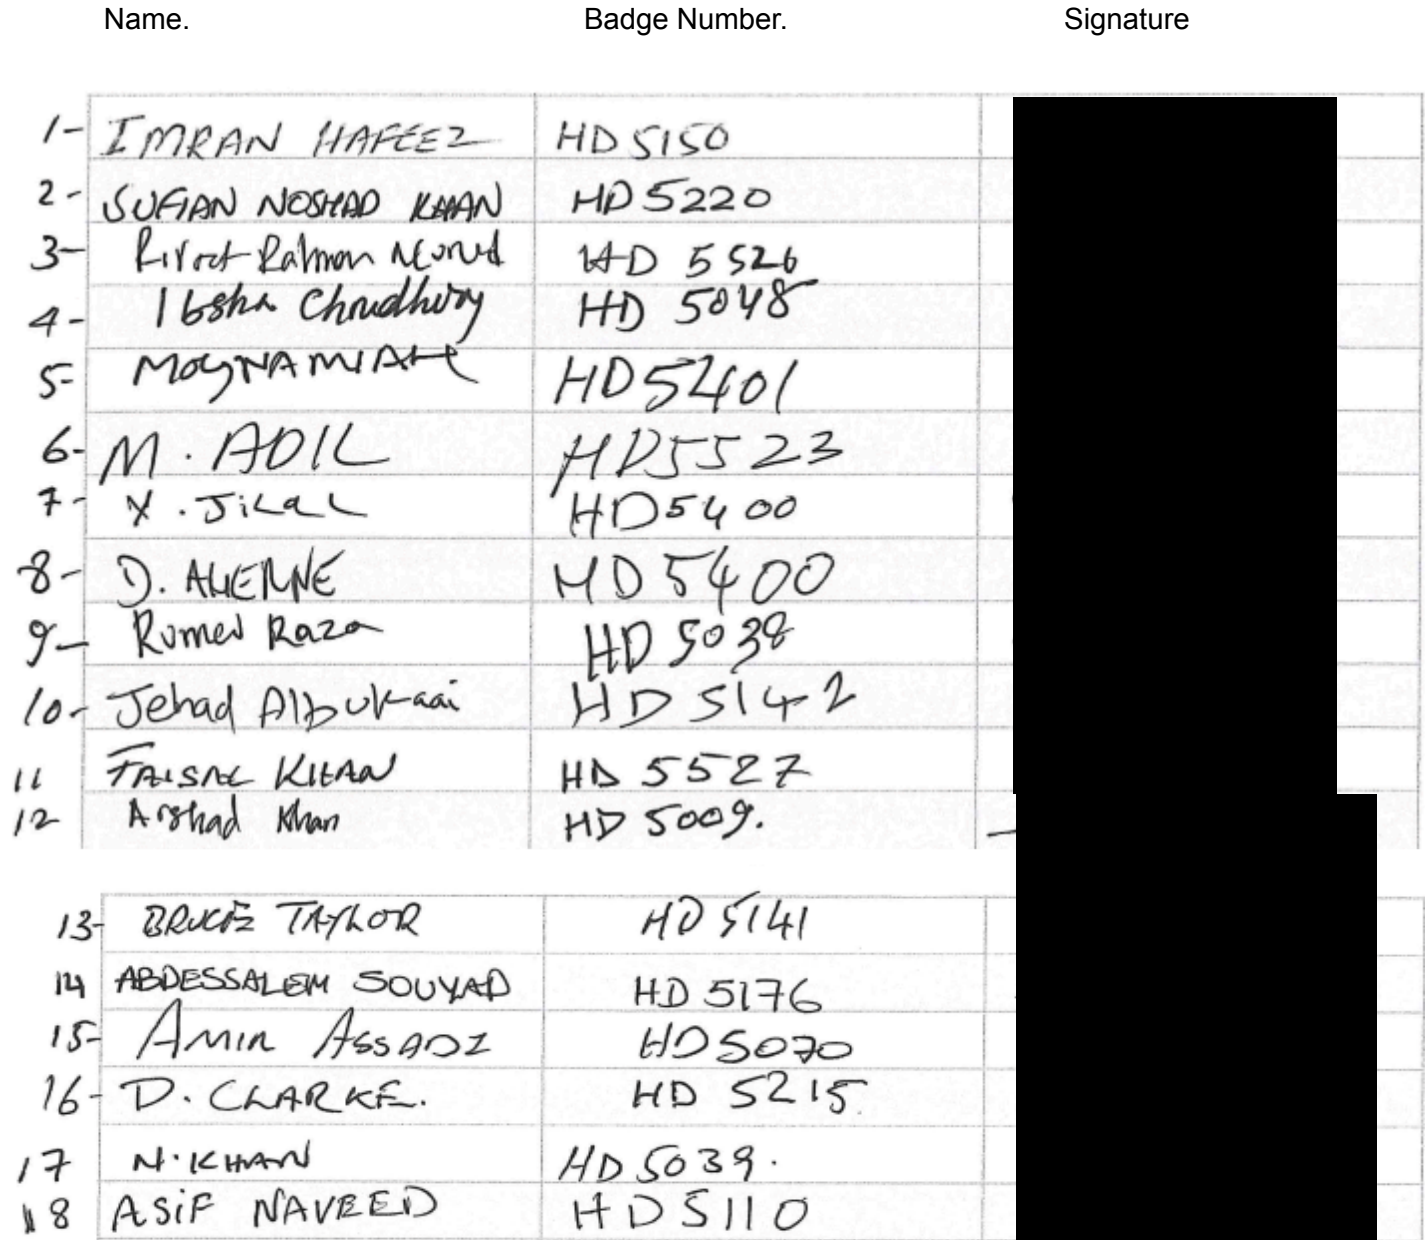 Name. Badge Number. Signature
1- IMRAN HAFEEZ HD 5150
2- SUFIAN NOSHAD KHAN HD 5220
3- Rahman HD 5526
4- Choudhury HD 5048
5- MOYNA MIAH HD 5401
6- M. ADIL HD 5523
7- Y. JiLaL HD 5400
8- D. AHERNE HD 5400
9- Raza HD 5038
10- Jehad Albukaai HD 5142
11 FAISAL KHAN HD 5527
12 Arshad Khan HD 5009.
13- BRUCE TAYLOR HD 5141
14 ABDESSALEM SOUYAD HD 5176
15- AMIR ASSADI HD 5070
16- D. CLARKE. HD 5215
17 N. KHAN HD 5039.
18 ASiF NAVEED HD 5110